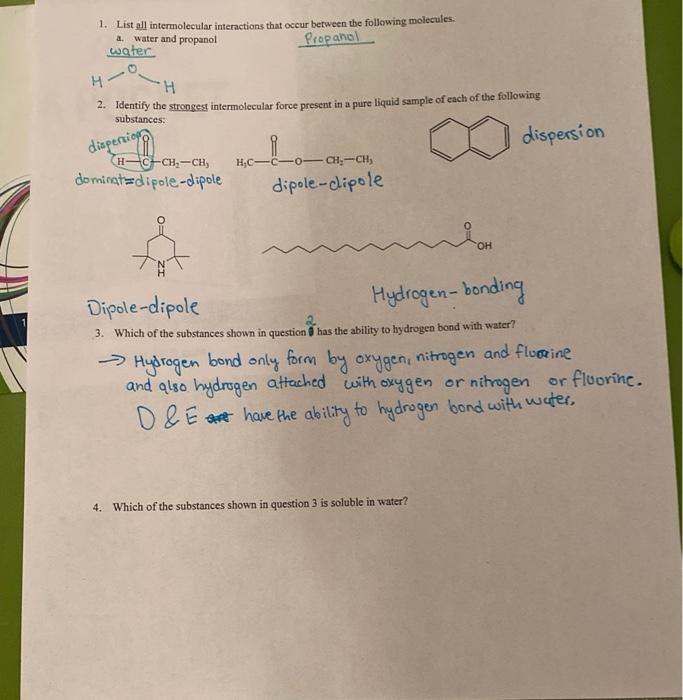 1. List all intermolecular interactions that occur between the following molecules.
a. water and propanol Propanol
water
H O H
2. Identify the strongest intermolecular force present in a pure liquid sample of each of the following
substances:
dispersion O O dispersion
H—C—CH₂—CH₃ H₃C—C—O—CH₂—CH₃
dominat=dipole-dipole dipole-dipole
O O
OH
N
H
Hydrogen-bonding
Dipole-dipole
2
3. Which of the substances shown in question has the ability to hydrogen bond with water?
→ Hydrogen bond only form by oxygen, nitrogen and fluorine
and also hydrogen attached with oxygen or nitrogen or fluorine.
D & E have the ability to hydrogen bond with water.
4. Which of the substances shown in question 3 is soluble in water?
1